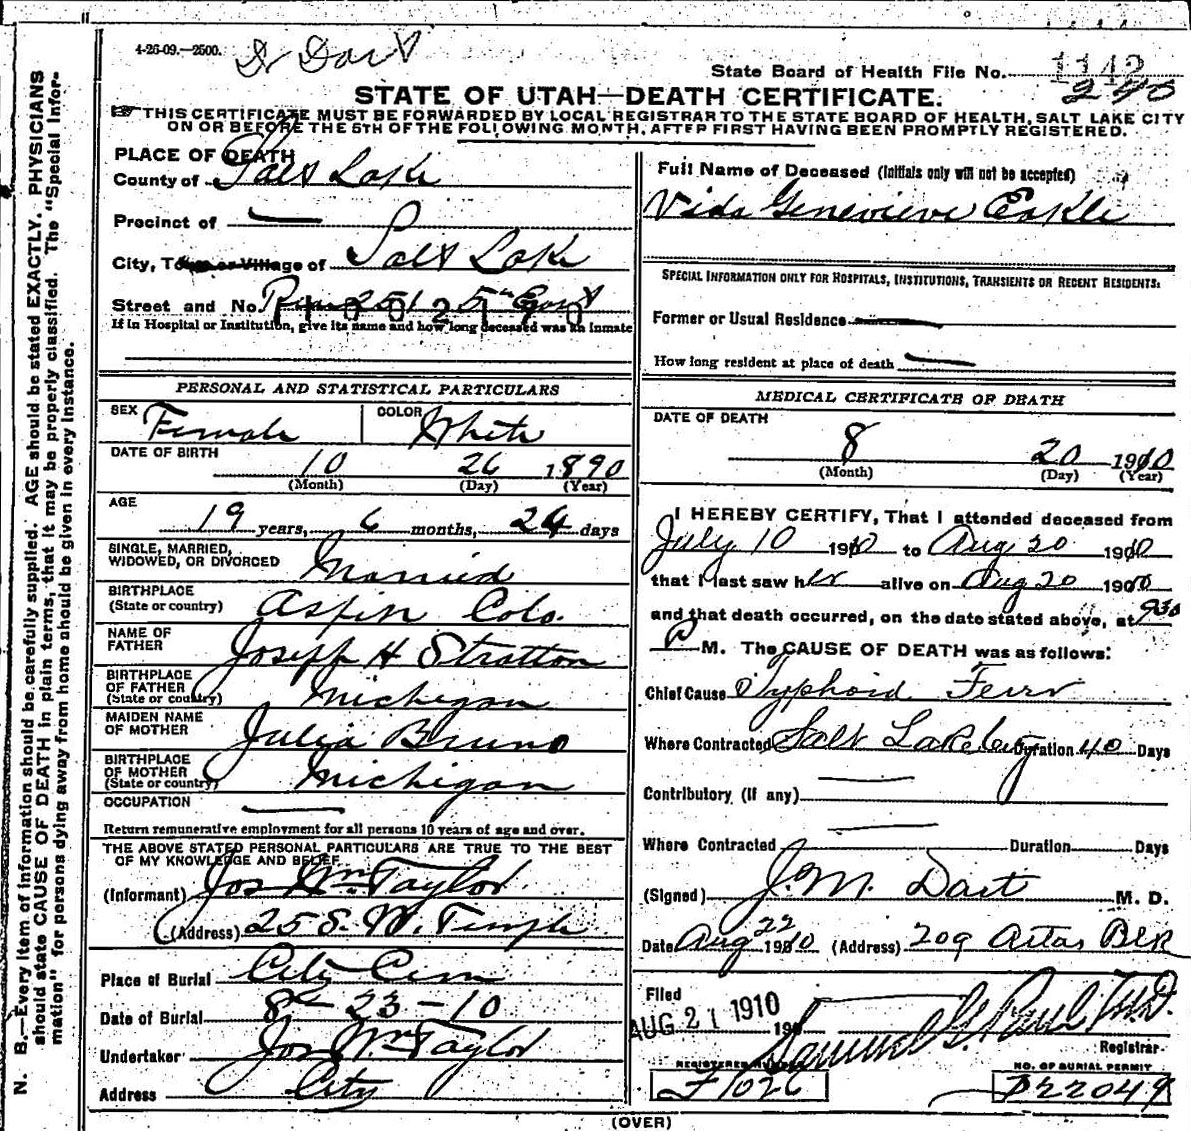 4-26-09.—2500.
Dr Dart
State Board of Health File No. 1142
290
STATE OF UTAH—DEATH CERTIFICATE.
THIS CERTIFICATE MUST BE FORWARDED BY LOCAL REGISTRAR TO THE STATE BOARD OF HEALTH, SALT LAKE CITY
ON OR BEFORE THE 5TH OF THE FOLLOWING MONTH, AFTER FIRST HAVING BEEN PROMPTLY REGISTERED.
PLACE OF DEATH
County of Salt Lake
Precinct of —
City, Town or Village of Salt Lake
Street and No. 251 5th East
1002190
If in Hospital or Institution, give its name and how long deceased was an inmate
Full Name of Deceased (Initials only will not be accepted)
Vida Genevieve Eakle
SPECIAL INFORMATION ONLY FOR HOSPITALS, INSTITUTIONS, TRANSIENTS OR RECENT RESIDENTS.
Former or Usual Residence —
How long resident at place of death —
PERSONAL AND STATISTICAL PARTICULARS
SEX Female COLOR White
DATE OF BIRTH 10 26 1890
(Month) (Day) (Year)
AGE 19 years, 6 months, 24 days
SINGLE, MARRIED,
WIDOWED, OR DIVORCED Married
BIRTHPLACE
(State or country) Aspin Colo.
NAME OF
FATHER Joseph H Stratton
BIRTHPLACE
OF FATHER
(State or country) Michigan
MAIDEN NAME
OF MOTHER Julia Bruno
BIRTHPLACE
OF MOTHER
(State or country) Michigan
OCCUPATION —
Return remunerative employment for all persons 10 years of age and over.
THE ABOVE STATED PERSONAL PARTICULARS ARE TRUE TO THE BEST
OF MY KNOWLEDGE AND BELIEF
(Informant) Jos Wm Taylor
(Address) 25 S. W. Temple
Place of Burial City Cem
Date of Burial 8 - 23 - 10
Undertaker Jos Wm Taylor
Address City
MEDICAL CERTIFICATE OF DEATH
DATE OF DEATH
8 20 1910
(Month) (Day) (Year)
I HEREBY CERTIFY, That I attended deceased from
July 10 1910 to Aug 20 1910
that I last saw her alive on Aug 20 1910
and that death occurred, on the date stated above, at 930
P M. The CAUSE OF DEATH was as follows:
Chief Cause Typhoid Fever
Where Contracted Salt Lake City Duration 40 Days
Contributory (if any) —
Where Contracted — Duration Days
(Signed) J. M. Dart M. D.
Date Aug 22 1910 (Address) 209 Atlas Blk
Filed
AUG 21 1910 190
Samuel G. Paul M.D.
Registrar
REGISTERED NUMBER
F1026
NO. OF BURIAL PERMIT
D22049
(OVER)
N. B.—Every item of information should be carefully supplied. AGE should be stated EXACTLY. PHYSICIANS
should state CAUSE OF DEATH in plain terms, that it may be properly classified. The "Special Infor-
mation" for persons dying away from home should be given in every instance.